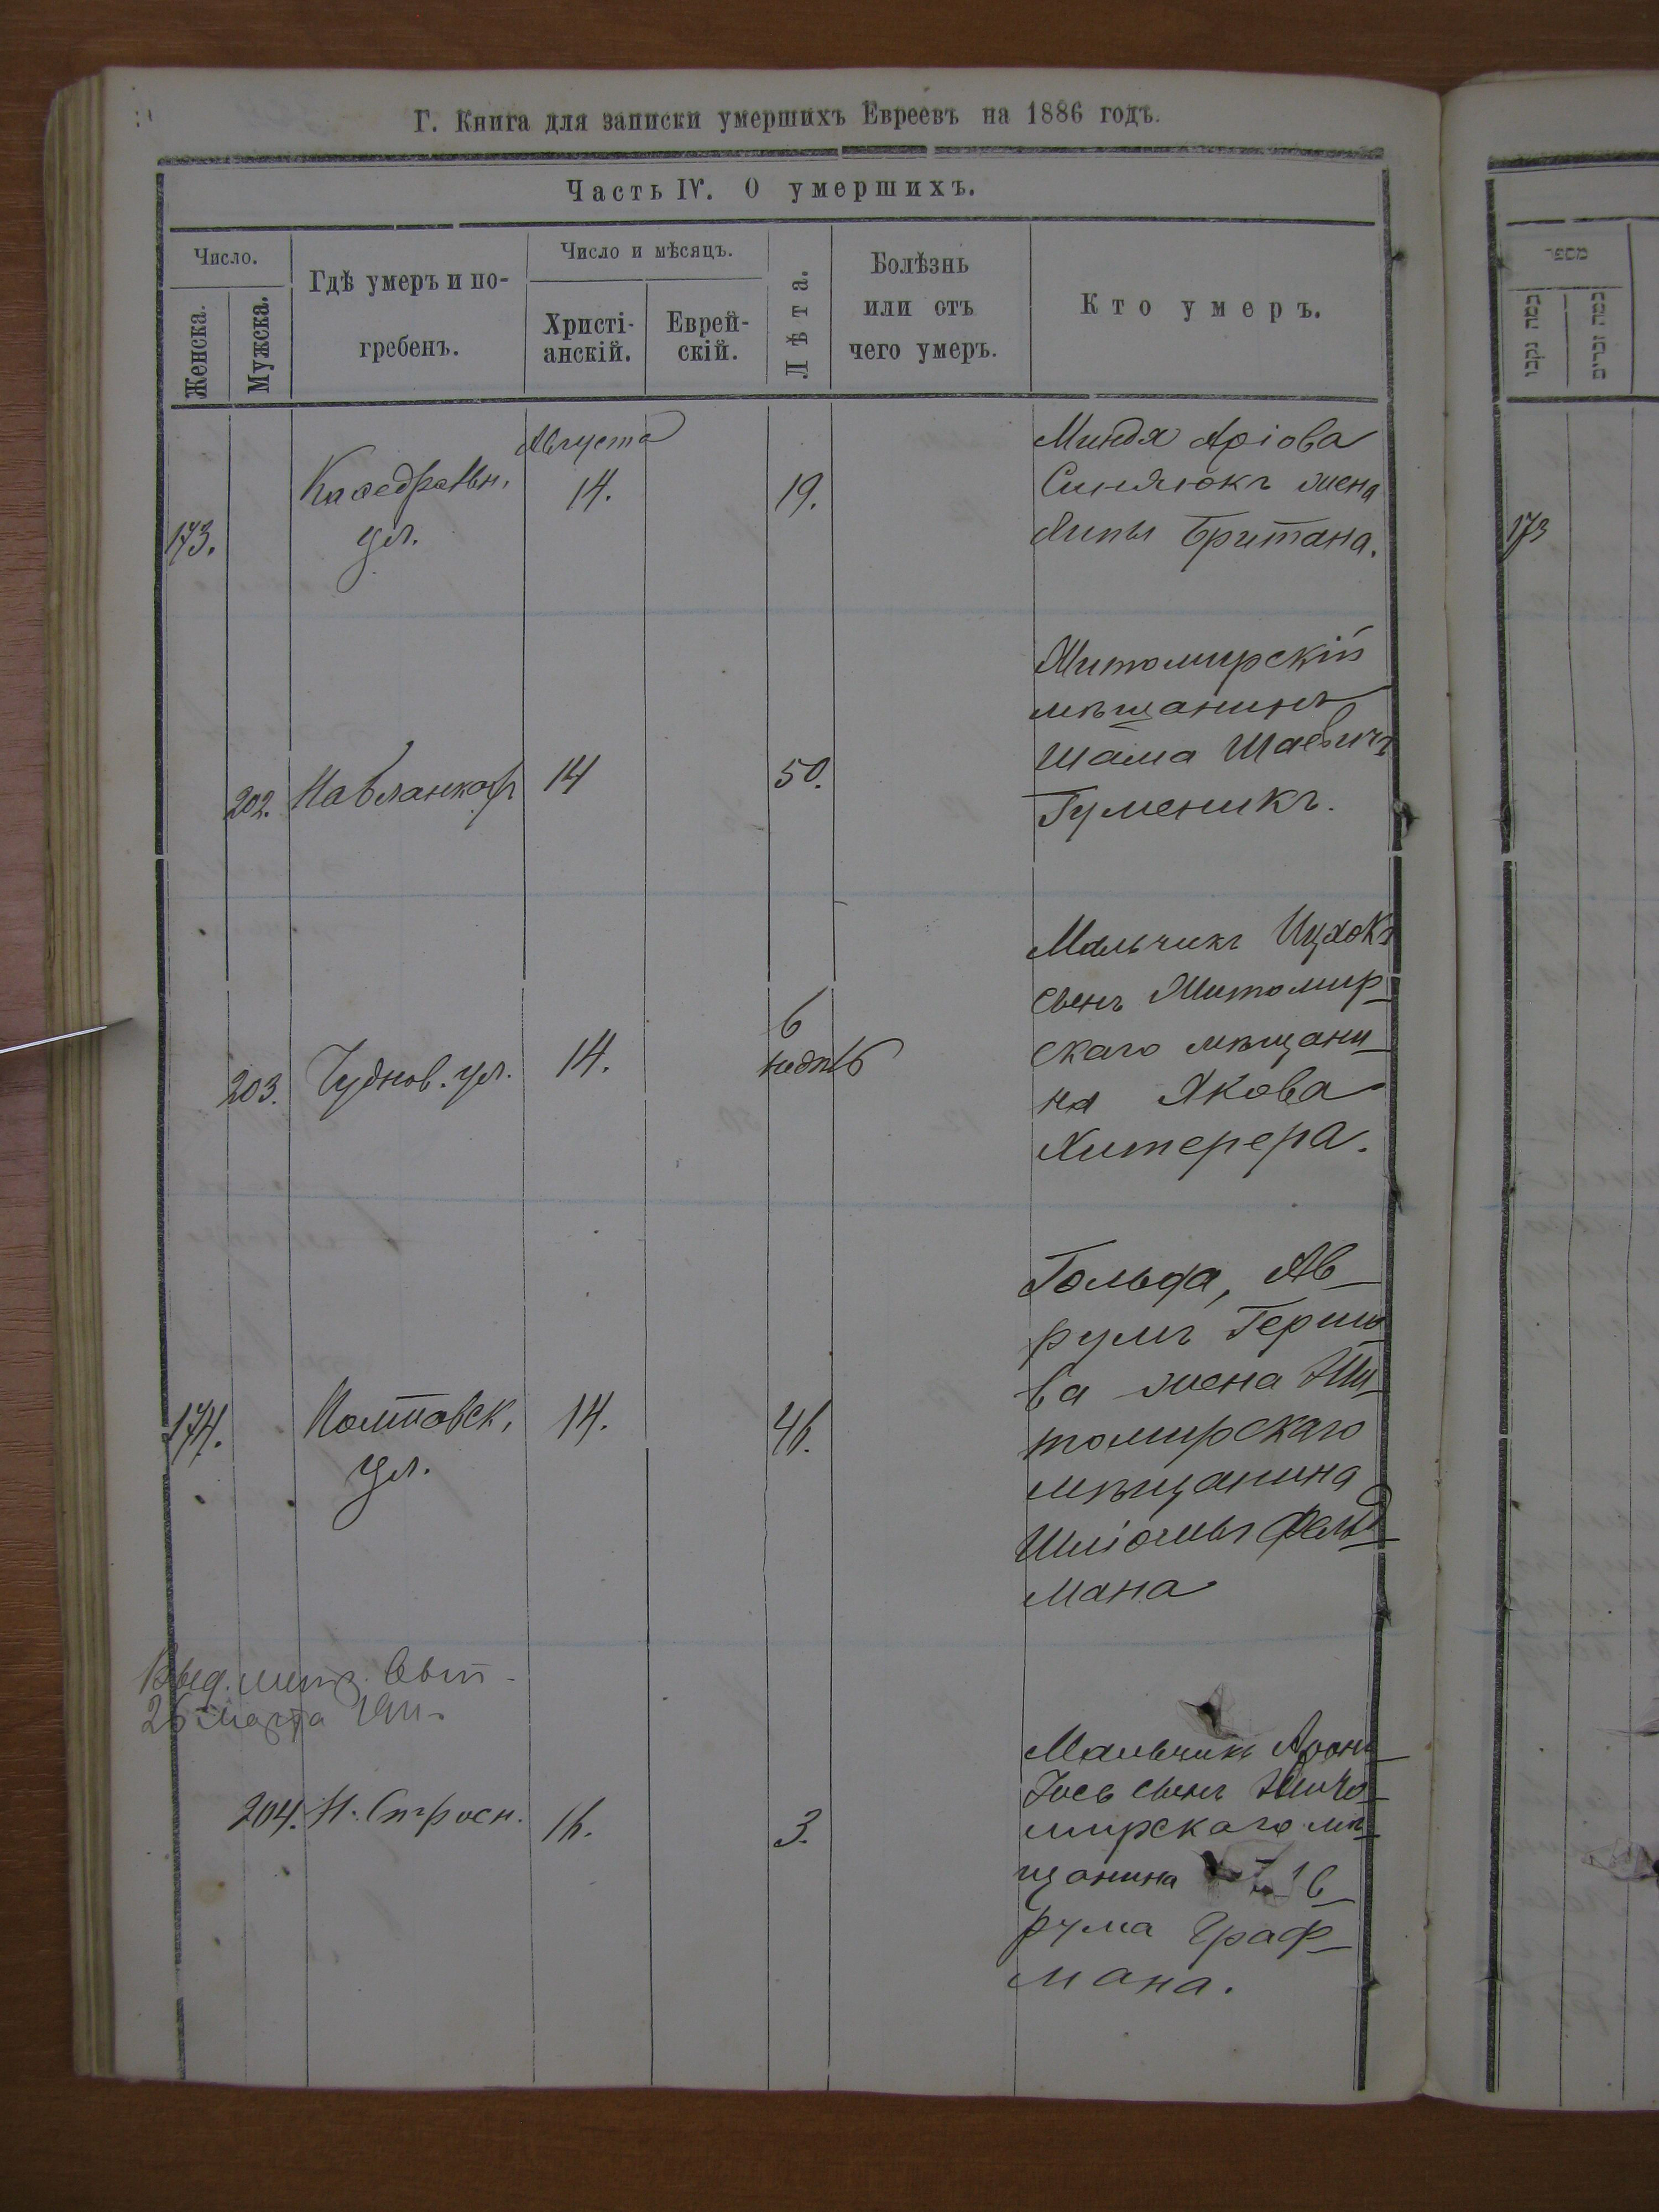 Г. Книга для записки умершихъ Евреевъ на 1886 годъ.
Часть IV. О умершихъ.
Число.
Женска.
Мужска.
Гдѣ умеръ и по-
гребенъ.
Число и мѣсяцъ.
Христі-
анскій.
Еврей-
скій.
Лѣта.
Болѣзнь
или отъ
чего умеръ.
Кто умеръ.
173.
Каѳедральн.
ул.
Августа
14.
19.
Миндя Аріова
Синлюкъ жена
Липы Британа.
202.
14
50.
Житомирскій
мѣщанинъ
Шама Шаевичъ
Гуменикъ.
203.
Чуднов. ул.
14.
6
недѣль
Мальчикъ Ицхокъ
сынъ Житомир-
скаго мѣщани-
на Якова
Хитерера.
174.
ул.
14.
46.
Гольда, Ав-
румъ Гершо-
ва жена Жи-
томирскаго
мѣщанина
Шліомы Фельд-
мана
Выд. метр. вып.
26 марта 1911.
204.
16.
3.
Мальчикъ Аронъ
Іось сынъ Жито-
мирскаго мѣ-
щанина
рума Граф-
мана.
173